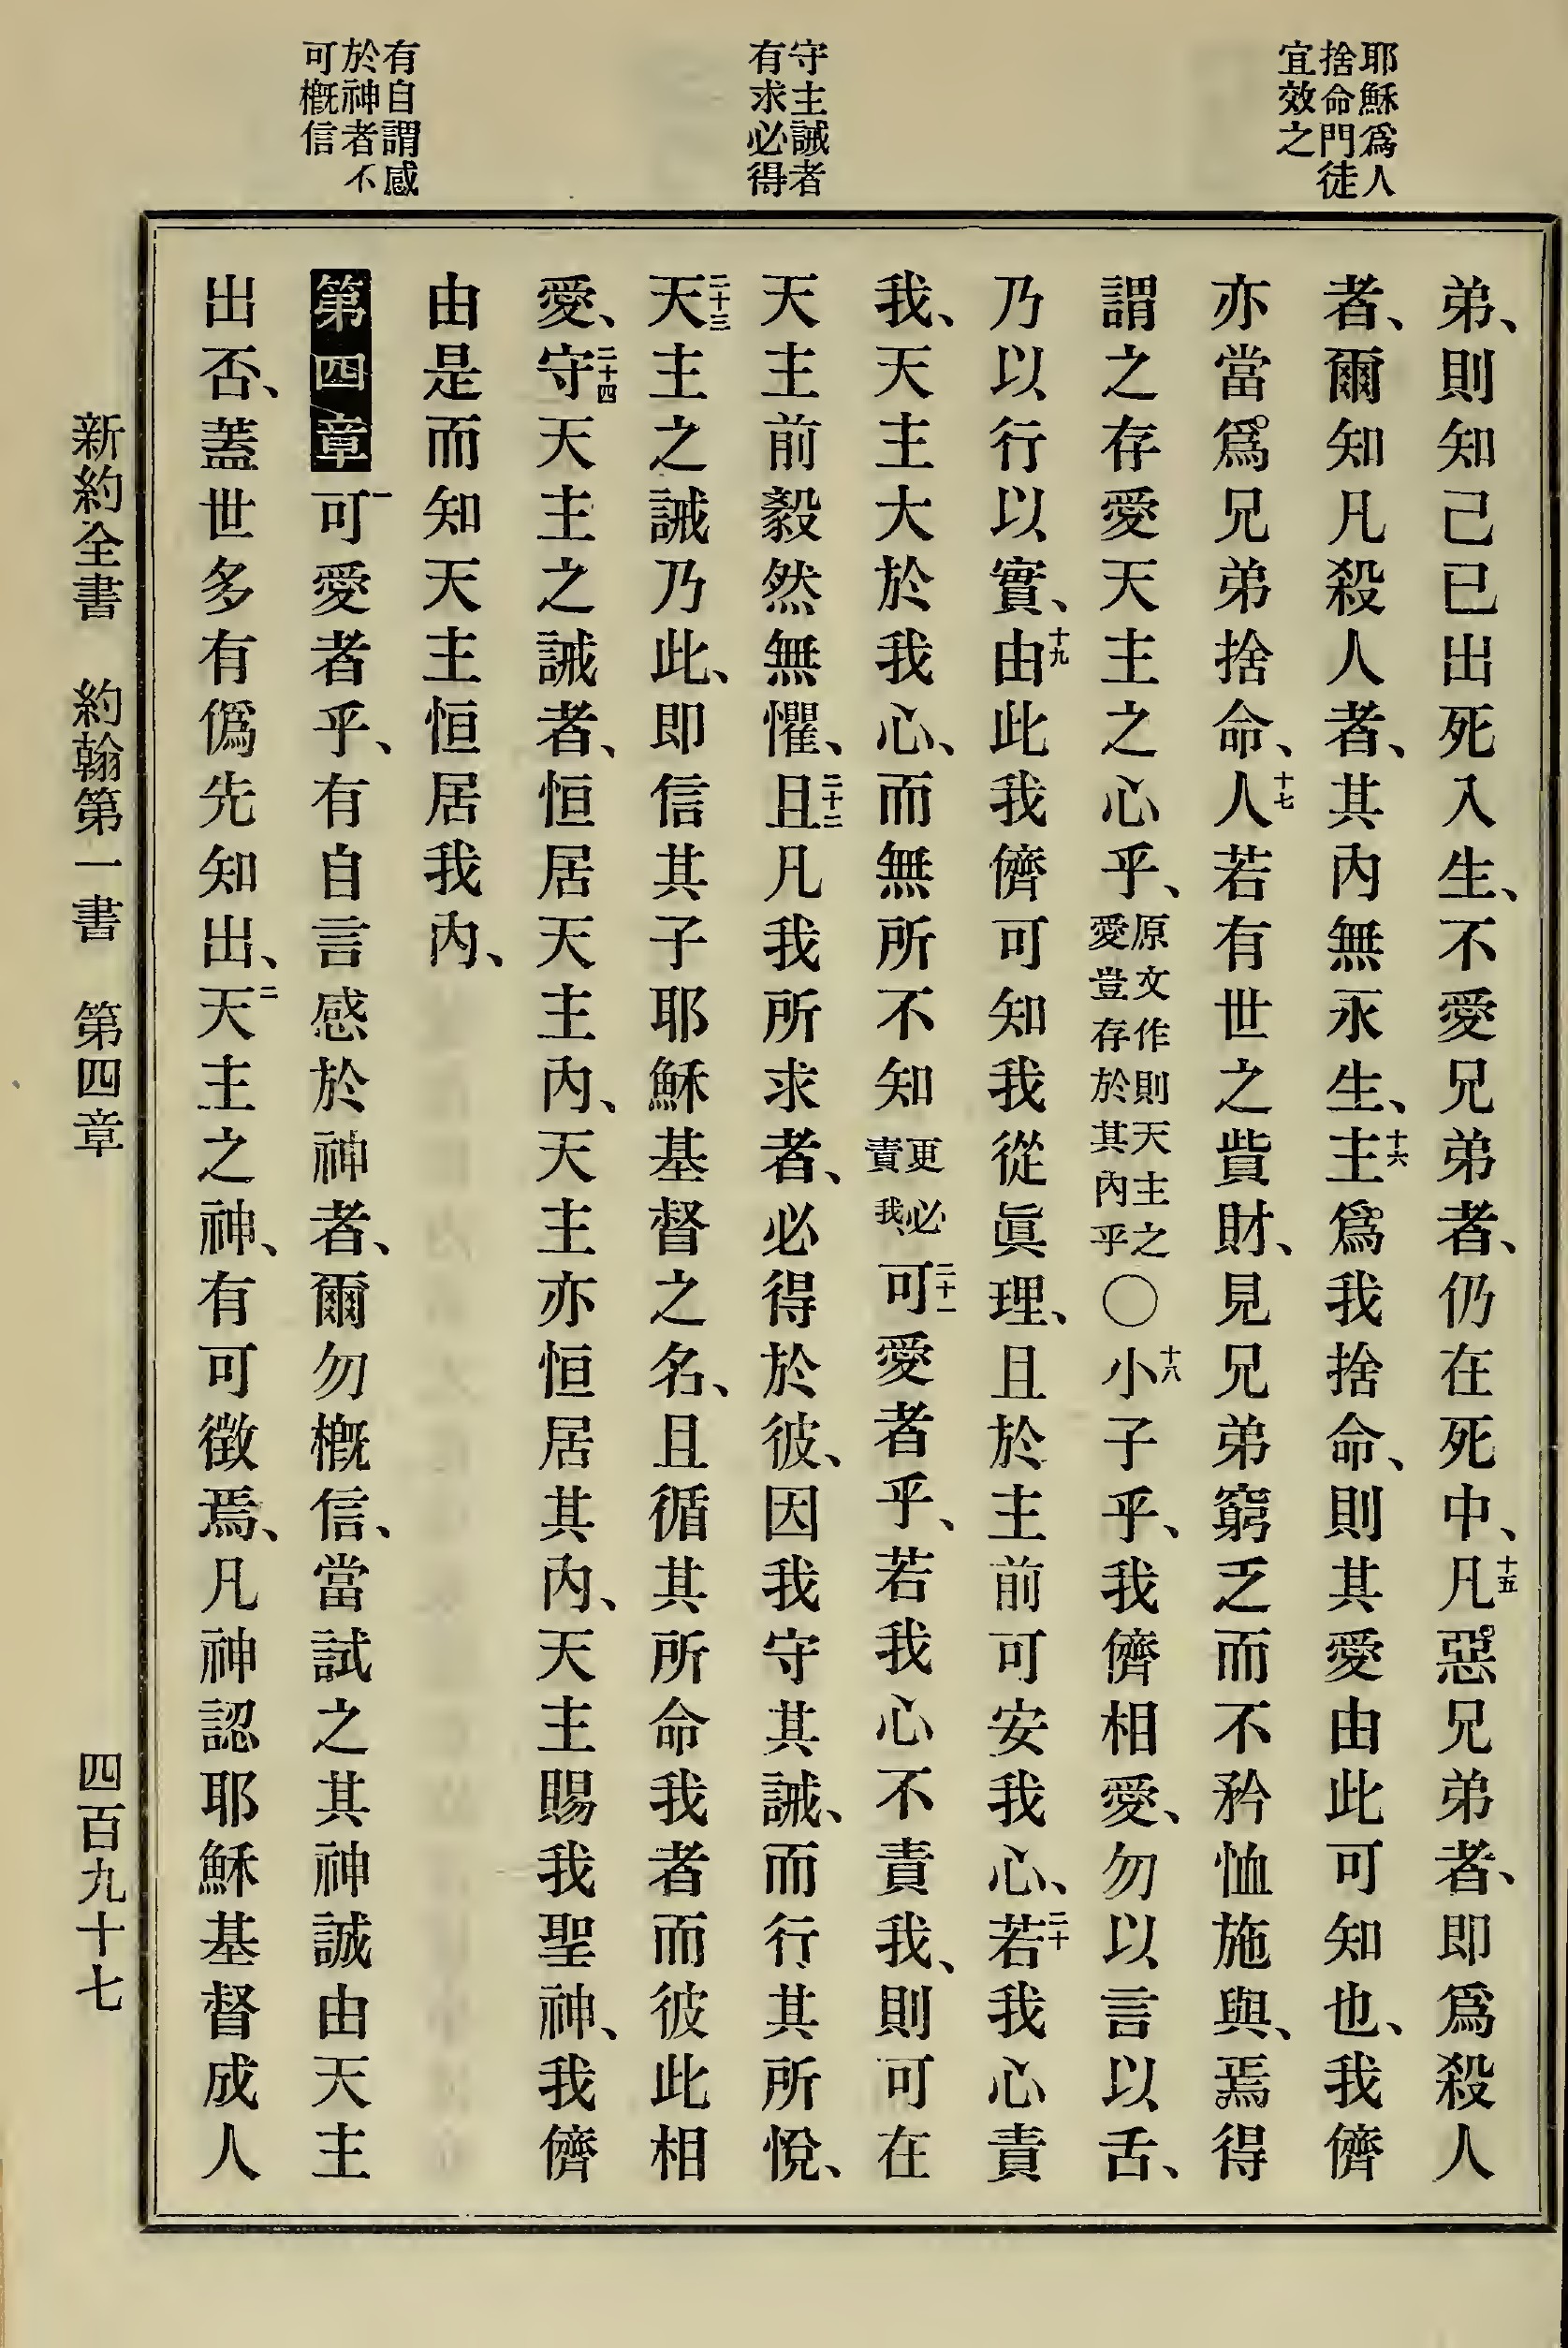 耶穌爲人
捨命門徒
宜效之
守主誡者
有求必得
有自謂感
於神者不
可概信
弟、則知己已出死入生、不愛兄弟者、仍在死中、十五凡惡兄弟者、即爲殺人
者、爾知凡殺人者、其內無永生、十六主爲我捨命、則其愛由此可知也、我儕
亦當爲兄弟捨命、十七人若有世之貲財、見兄弟窮乏而不矜恤施與、焉得
謂之存愛天主之心乎、原文作則天主之愛豈存於其內乎〇十八小子乎、我儕相愛、勿以言以舌、
乃以行以實、十九由此我儕可知我從眞理、且於主前可安我心、二十若我心責
我、天主大於我心、而無所不知更必責我、二十一可愛者乎、若我心不責我、則可在
天主前毅然無懼、二十二且凡我所求者、必得於彼、因我守其誡、而行其所悅、
二十三天主之誡乃此、即信其子耶穌基督之名、且循其所命我者而彼此相
愛、二十四守天主之誡者、恒居天主內、天主亦恒居其內、天主賜我聖神、我儕
由是而知天主恒居我內、
第四章 一可愛者乎、有自言感於神者、爾勿概信、當試之其神誠由天主
出否、蓋世多有僞先知出、二天主之神、有可徵焉、凡神認耶穌基督成人
新約全書 約翰第一書 第四章 四百九十七